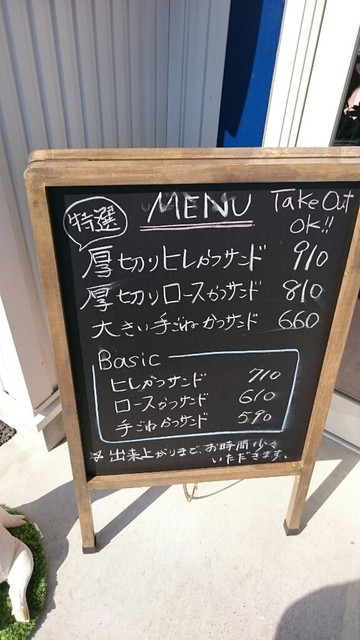 特選
MENU
Take Out
OK!!
厚切りヒレかつサンド 910
厚切りロースかつサンド 810
大きい手ごねかつサンド 660
Basic
ヒレかつサンド 710
ロースかつサンド 610
手ごねかつサンド 590
※出来上がりまで、お時間少々
いただきます。